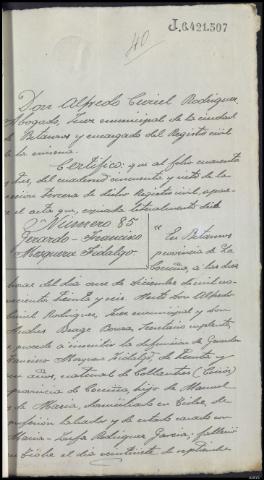 J.6421.507
40
Don Alfredo Curiel Rodriguez,
Abogado, Juez municipal de la ciudad
de Betanzos y encargado del Registro civil
de la misma.
Certifico: que al folio cuarenta
y tres, del cuaderno cincuenta y siete de la
sección tercera de dicho Registro civil, apare-
ce el acta que, copiada literalmente dice
Número 85
Gerardo-Francisco
Mosquera Fidalgo
"En Betanzos
provincia de La
Coruña, a las diez
horas del día once de diciembre de mil no-
vecientos treinta y seis. Ante Don Alfredo
Curiel Rodriguez, Juez municipal y don
suplente,
se procede a inscribir la defunción de Gerardo
Francisco Mosquera Fidalgo, de treinta y
años, natural de
provincia de Coruña, hijo de Manuel
y de María, domiciliado en
profesión labrador y de estado casado con
María Rodriguez Garcia; falleció
el día veintisiete de septiembre